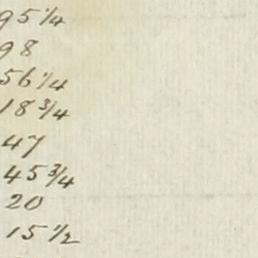 95 1/4
98
56 1/4
18 3/4
47
45 3/4
20
15 1/2